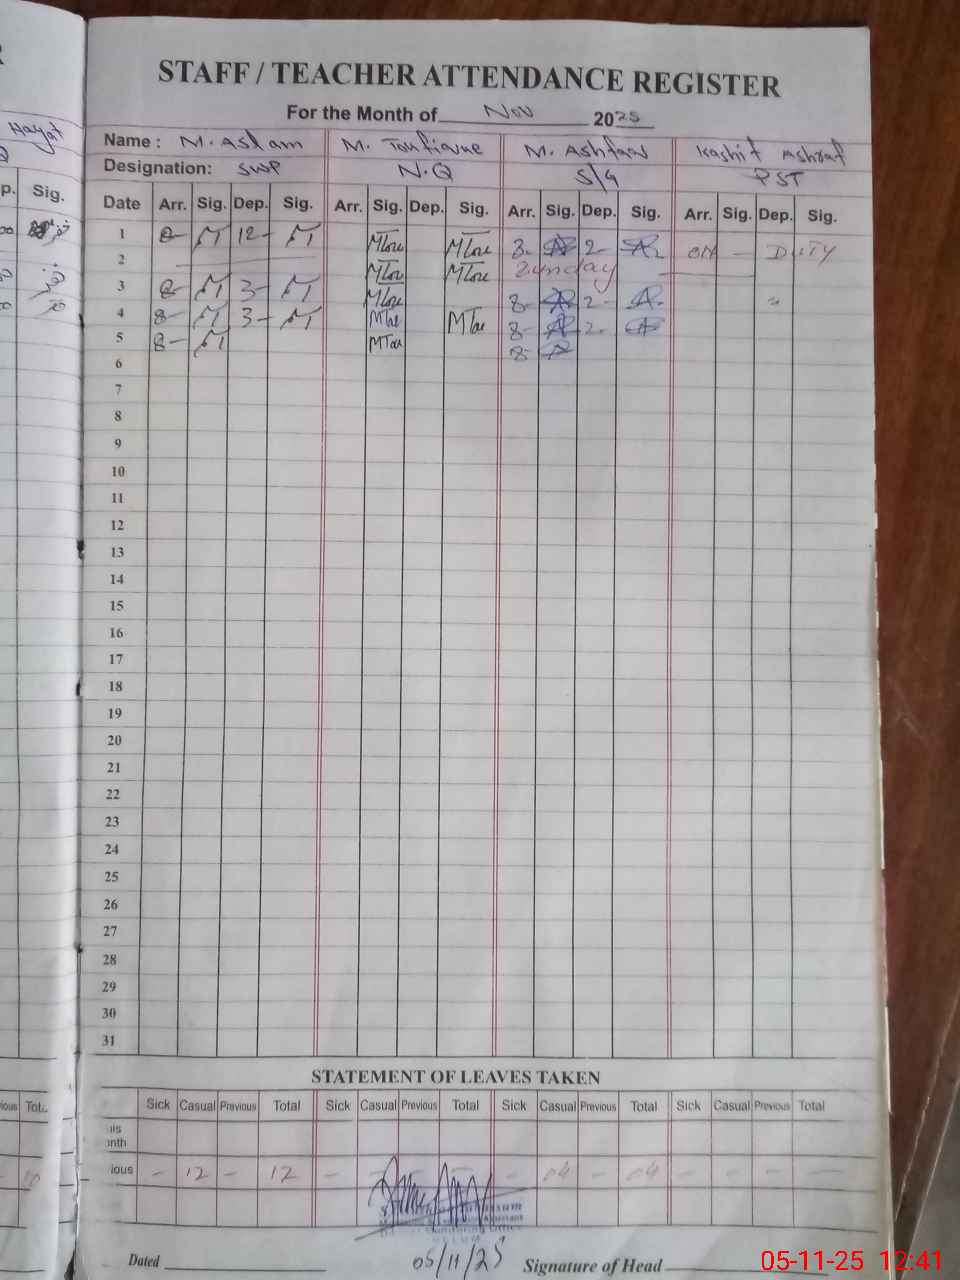 STAFF / TEACHER ATTENDANCE REGISTER
For the Month of Nov 2025
Hayat
Name : M. Aslam M. Toufique M. Ashfaq Kashif Ashraf
Designation: SWP N.Q S/G PST
p. Sig.
Date Arr. Sig. Dep. Sig. Arr. Sig. Dep. Sig. Arr. Sig. Dep. Sig. Arr. Sig. Dep. Sig.
1 8- 12- 8- 2- ON - DUTY
2 Sunday
3 8- 3- 8- 2- "
4 8- 3- 8- 2-
5 8- 8-
6
7
8
9
10
11
12
13
14
15
16
17
18
19
20
21
22
23
24
25
26
27
28
29
30
31
STATEMENT OF LEAVES TAKEN
Sick Casual Previous Total Sick Casual Previous Total Sick Casual Previous Total Sick Casual Previous Total
ious - 12 - 12 - - 04 - 04 - - - -
Dated 05/11/25 Signature of Head
05-11-25 12:41